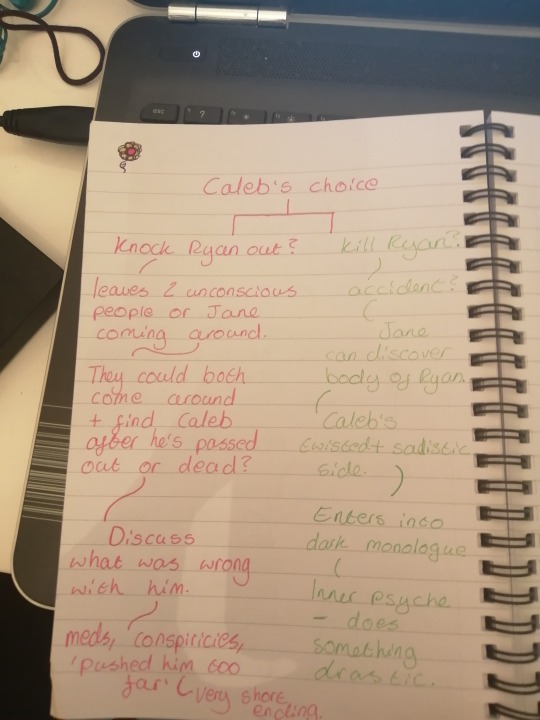 esc
?
Caleb's choice
Knock Ryan out?
leaves 2 unconscious
people or Jane
coming around.
They could both
come around
+ find Caleb
after he's passed
out or dead?
Discuss
what was wrong
with him.
meds, conspiricies,
'pushed him too
far.' (very short
ending.
Kill Ryan?
accident?
Jane
can discover
body of Ryan.
Caleb's
twisted + sadistic
side.
Enters into
dark monologue
Inner psyche
- does
something
drastic.